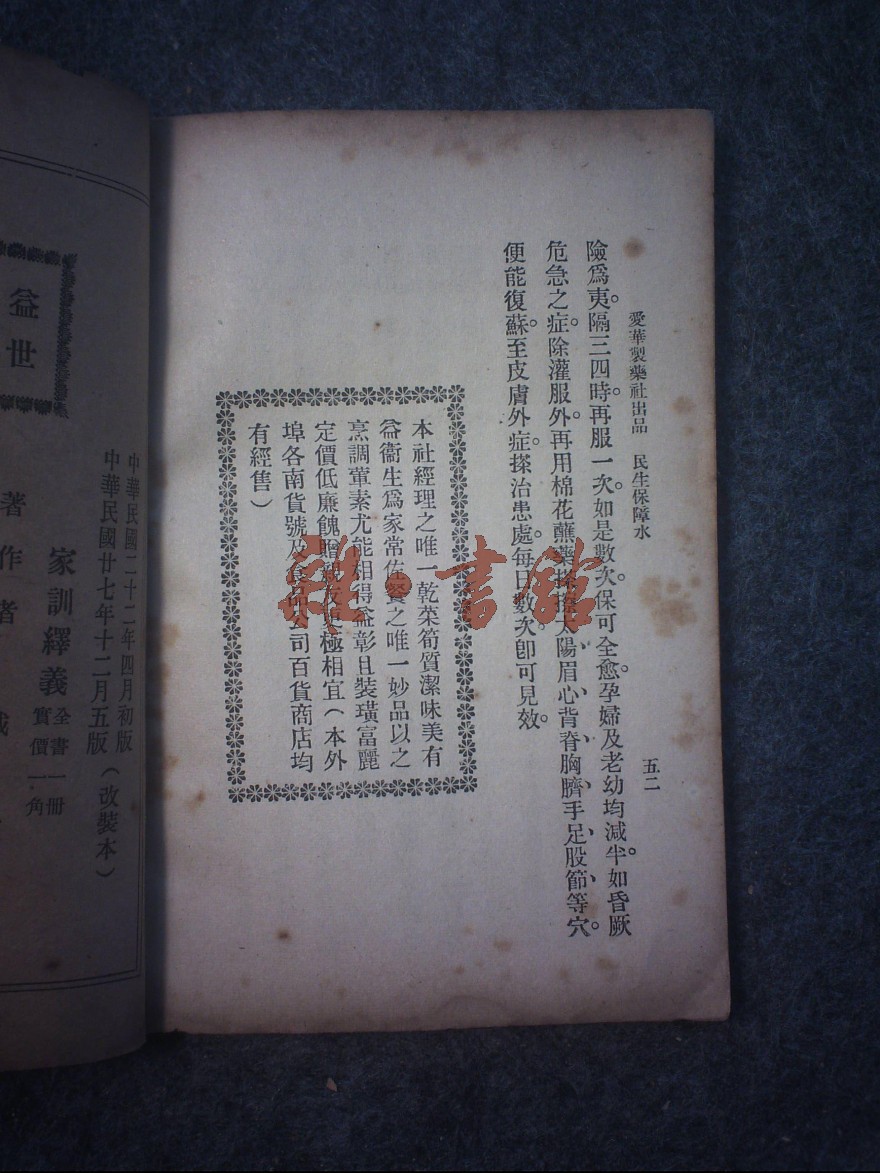 愛華製藥社出品　民生保障水
五二
險爲夷。隔三四時。再服一次。如是數次。保可全愈。孕婦及老幼均減半。如昏厥
危急之症。除灌服外。再用棉花蘸藥搽擦太陽、眉心、背脊、胸臍、手足、股節、等穴。
便能復蘇。至皮膚外症。搽治患處。每日數次。卽可見效。
本社經理之唯一乾菜筍質潔味美有
益衞生爲家常佐餐之唯一妙品以之
烹調葷素尤能相得益彰且裝璜富麗
定價低廉餽贈親友更極相宜（本外
埠各南貨號及食品公司百貨商店均
有經售）
雜·書館
中華民國二十二年四月初版
中華民國廿七年十二月五版（改裝本）
家訓繹義
全書一冊
實價一角
著作者
益世